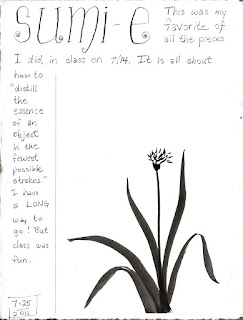 sumi-e
This was my
favorite of
all the pieces
I did in class on 7/14. It is all about
how to
"distill
the
essence
of an
object
in the
fewest
possible
strokes."
I have
a LONG
way to
go! But
class was
fun.
7.25
2011